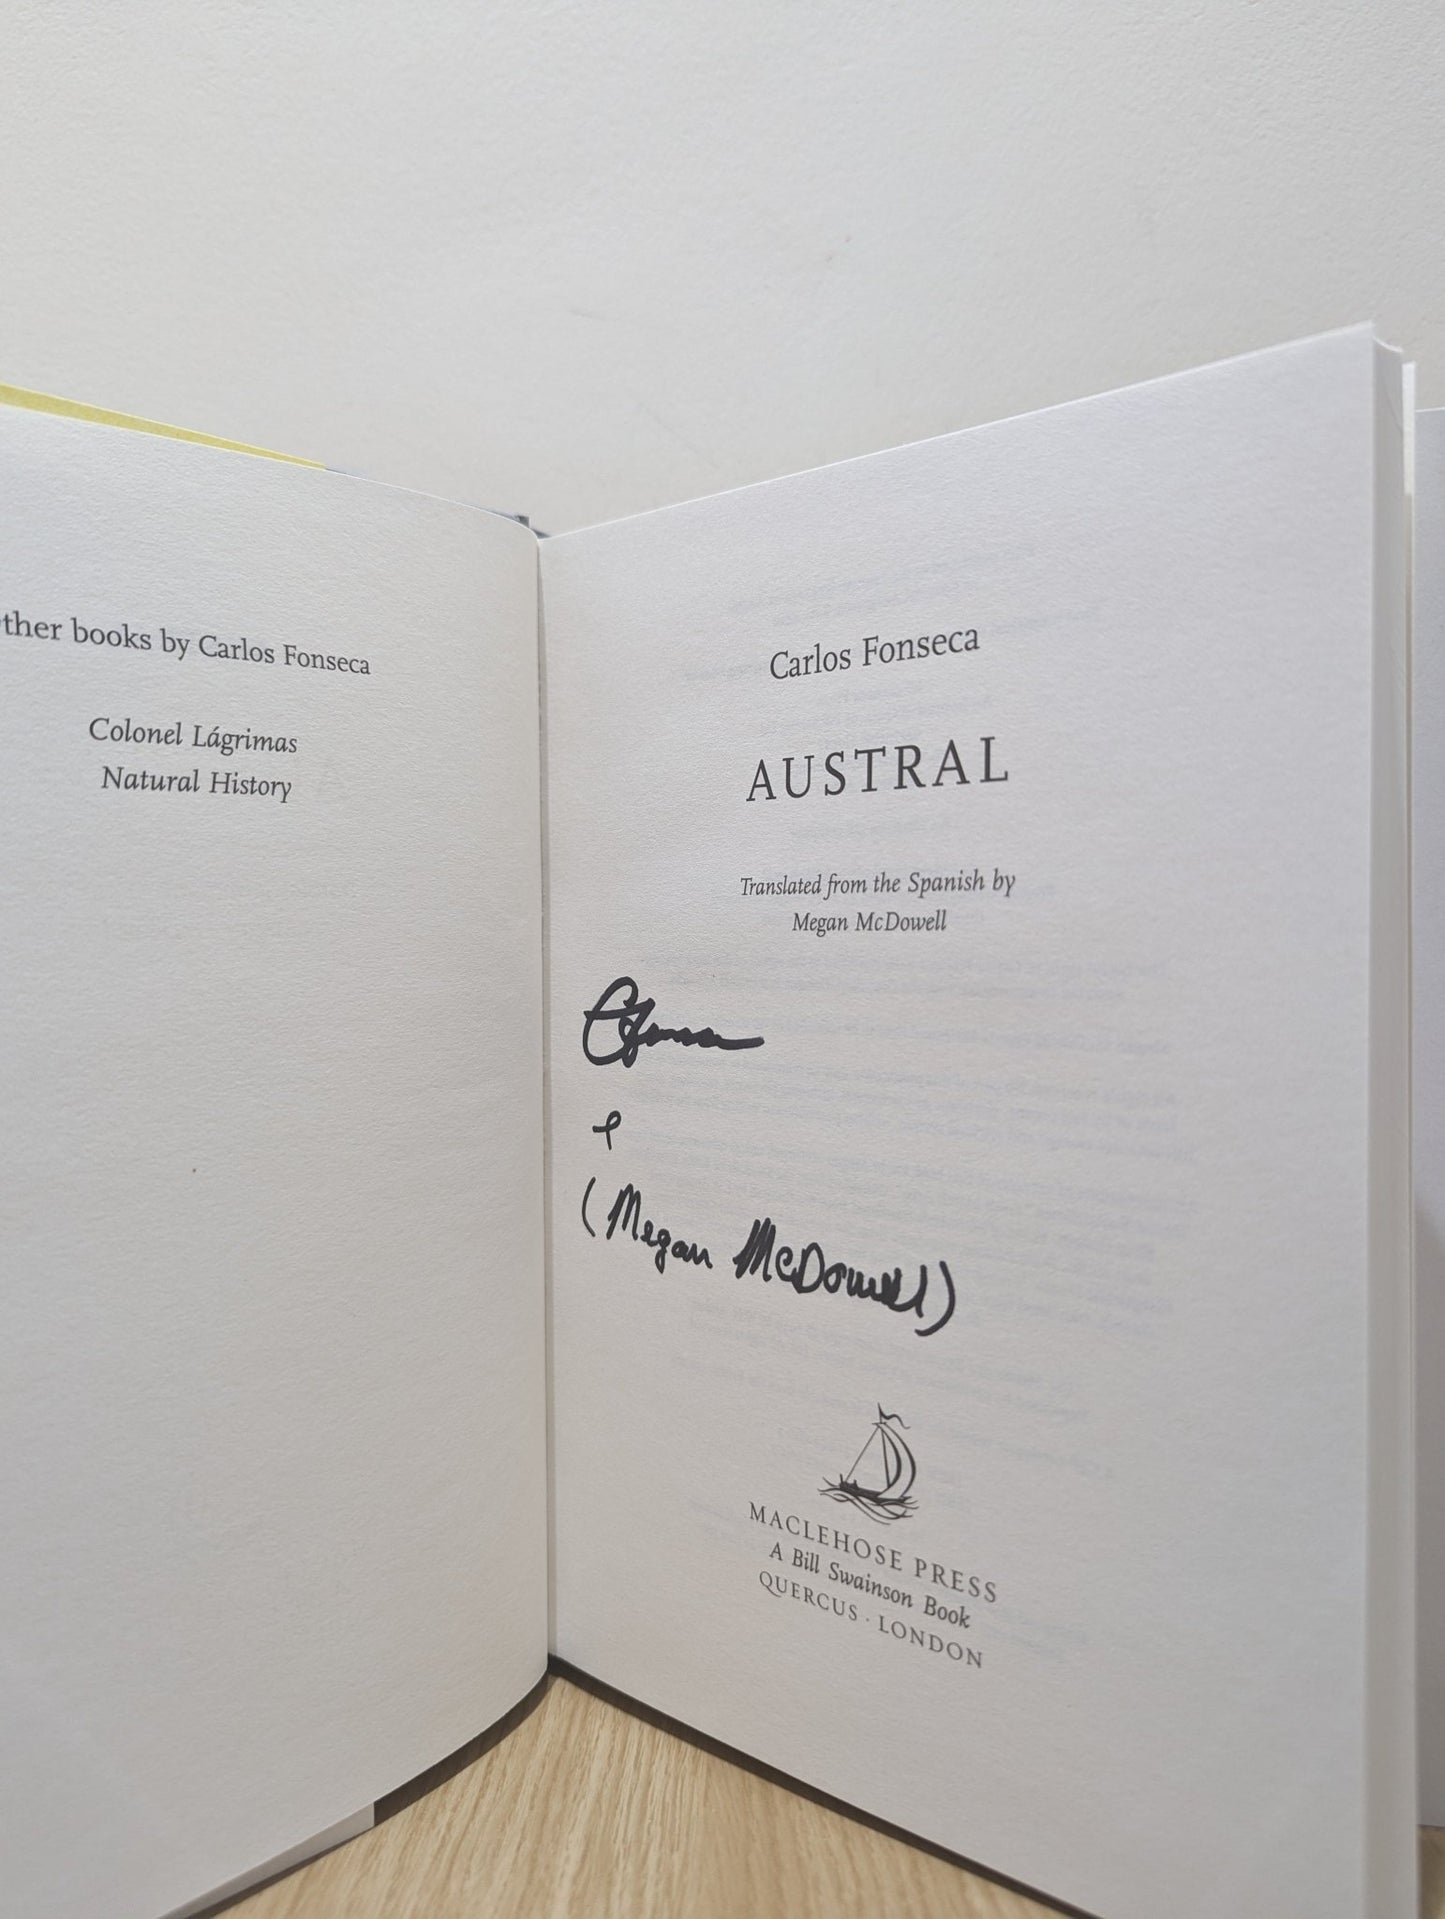 ther books by Carlos Fonseca
Colonel Lágrimas
Natural History
Carlos Fonseca
AUSTRAL
Translated from the Spanish by
Megan McDowell
(Megan McDowell)
MACLEHOSE PRESS
A Bill Swainson Book
QUERCUS · LONDON